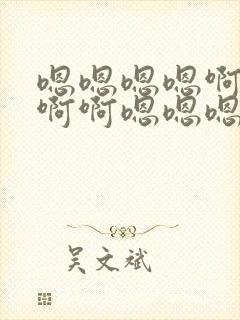 嗯嗯嗯嗯啊
啊啊嗯嗯嗯
吴文斌